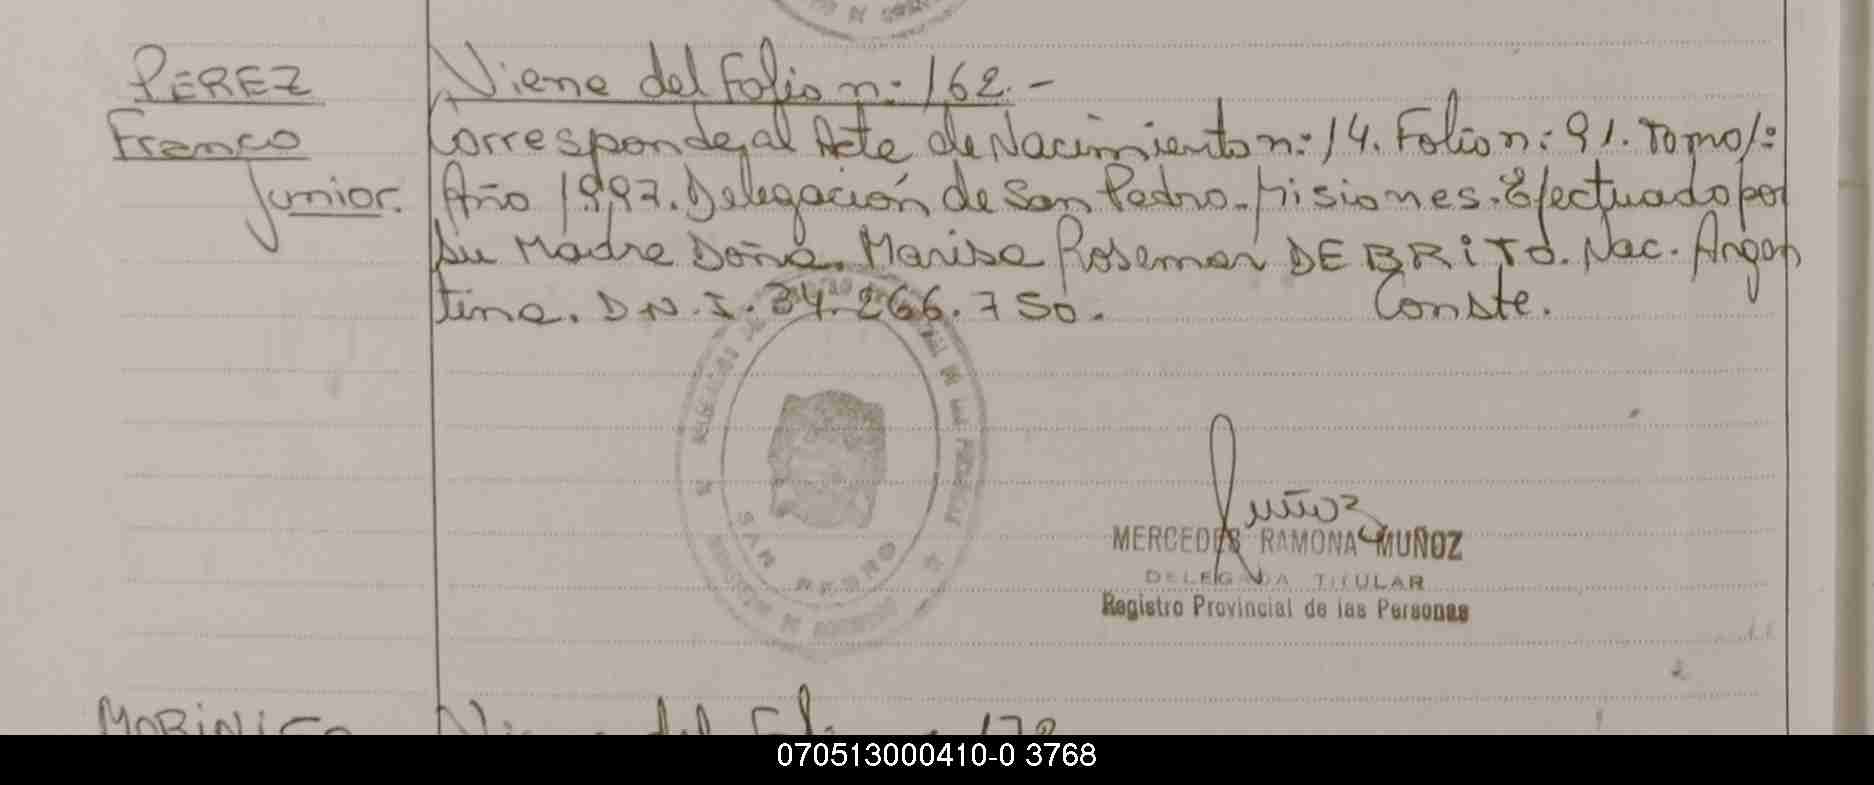 PEREZ
Franco
Junior.
Viene del Folio n: 162.-
Corresponde, al Acta de Nacimiento n: 14. Folio n: 91. Tomo 1:
Año 1997. Delegación de San Pedro. Misiones. Efectuado por
su Madre Doña. Marisa Rosemar DE BRITO. Nac. Argen
tina. D N. I. 34.266.750. Conste.
SAN PEDRO
Muñoz
MERCEDES RAMONA MUÑOZ
DELEGADA TITULAR
Registro Provincial de las Personas
MORINIGO Viene del Folio n 178
070513000410-0 3768